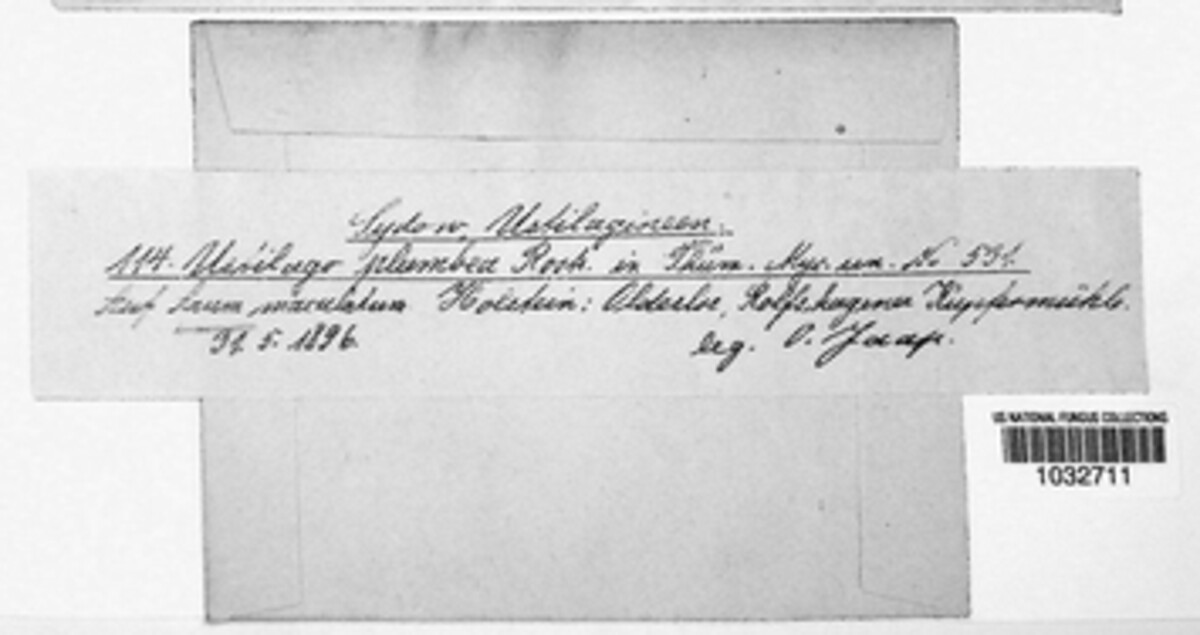 Sydow, Ustilagineen.
114. Ustilago plumbea Rostr. in Thüm. Myc. un. № 531.
Auf Arum maculatum Holstein: Oldesloe, Rolfshagener Kupfermühle.
31.5.1896. leg. O. Jaap.
US NATIONAL FUNGUS COLLECTIONS
1032711